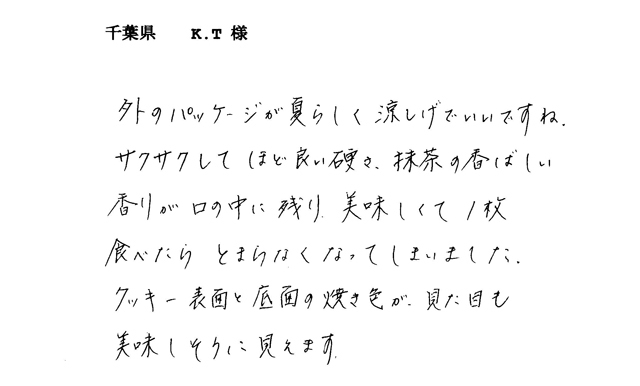 千葉県　K.T 様
外のパッケージが夏らしく涼しげでいいですね.
サクサクして ほど良い硬さ、抹茶の香ばしい
香りが口の中に残り 美味しくて 1枚
食べたら とまらなくなってしまいました.
クッキー表面と底面の焼き色が、見た目も
美味しそうに見えます.